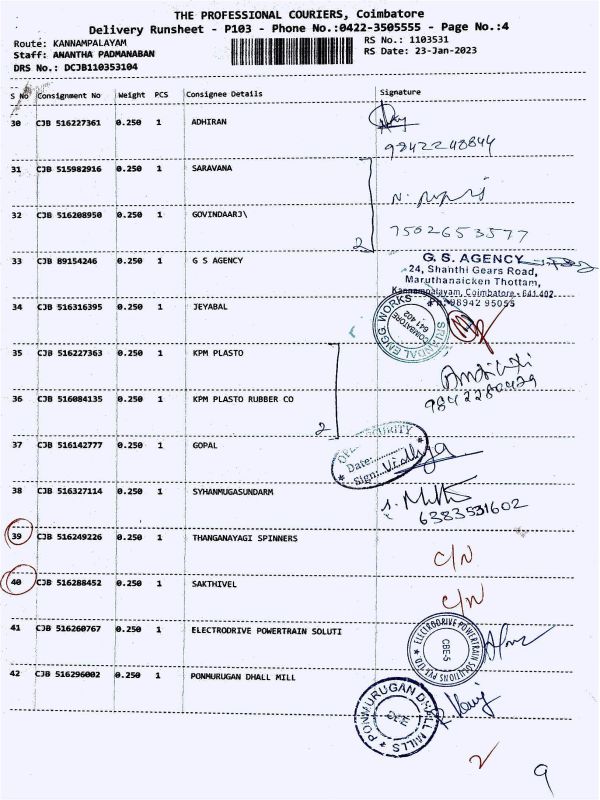 THE PROFESSIONAL COURIERS, Coimbatore
Delivery Runsheet - P103 - Phone No.:0422-3505555 - Page No.:4
Route: KANNAMPALAYAM
RS No.: 1103531
Staff: ANANTHA PADMANABAN
RS Date: 23-Jan-2023
DRS No.: DCJB110353104
S No Consignment No Weight PCS Consignee Details Signature
30 CJB 516227361 0.250 1 ADHIRAN
9842248844
31 CJB 515982916 0.250 1 SARAVANA
32 CJB 516208950 0.250 1 GOVINDAARJ\
7502653577
2
33 CJB 89154246 0.250 1 G S AGENCY
G. S. AGENCY
24, Shanthi Gears Road,
Maruthanaicken Thottam,
Kannampalayam, Coimbatore - 641 402.
Ph: 98942 95055
34 CJB 516316395 0.250 1 JEYABAL
ENGG WORKS
COIMBATORE
641 402
35 CJB 516227363 0.250 1 KPM PLASTO
9842280429
36 CJB 516084135 0.250 1 KPM PLASTO RUBBER CO
2
37 CJB 516142777 0.250 1 GOPAL
SECURITY
Date:
Sign: Vidhya
38 CJB 516327114 0.250 1 SYHANMUGASUNDARM
6383531602
39 CJB 516249226 0.250 1 THANGANAYAGI SPINNERS
C/N
40 CJB 516288452 0.250 1 SAKTHIVEL
C/N
41 CJB 516260767 0.250 1 ELECTRODRIVE POWERTRAIN SOLUTI
ELECTRODRIVE POWERTRAIN SOLUTIONS PVT LTD
CBE-5
42 CJB 516296002 0.250 1 PONMURUGAN DHALL MILL
PONMURUGAN DHALL MILLS
CBE
2
9